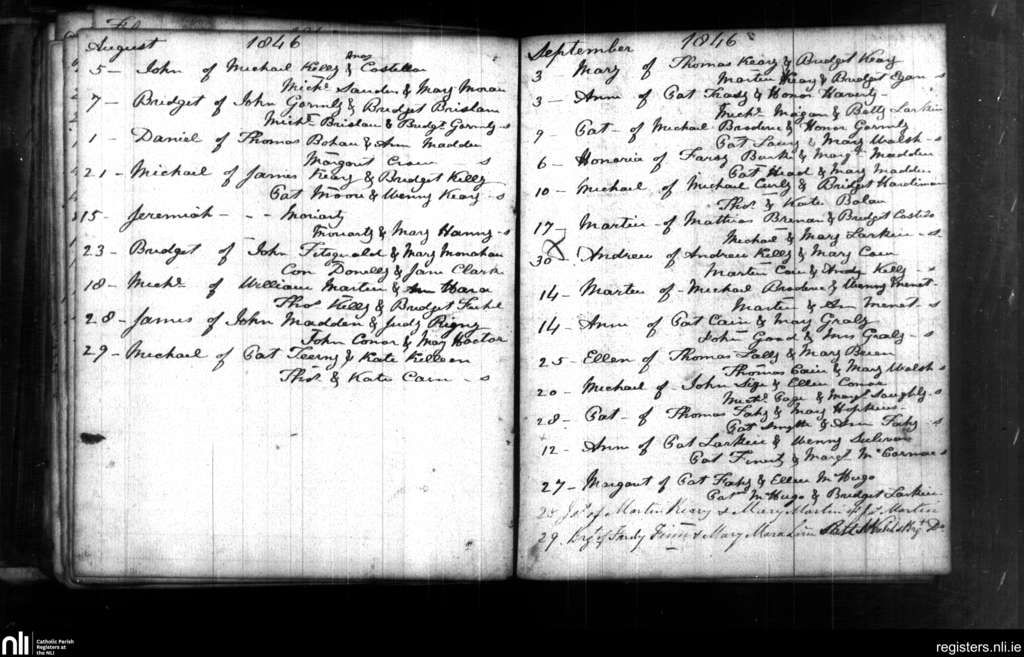 August 1846
5 - John of Michael Kelly & May Costello
Michl. & Mary Moran
7 - Bridget of John Gormly & Bridget Brislan
Michl. Brislan & Bridgt. Gormly - s
1 - Daniel of Thomas Bohan & Ann Madden
Margaret - s
21 - Michael of James Keary & Bridget Kelly
Pat Moore & Wenny Keary - s
15 - Jeremiah - - Moriarty
Moriarty & Mary Hanny - s
23 - Bridget of John Fitzgerald & Mary Monahan
Con Donelly & Jane Clark
18 - Michl. of William Martin & Ann Hara
Thos Kelly & Bridget
28 - James of John Madden & Judy
John Conor & May Hoctor
29 - Michael of Pat & Kate Killeen
Thos & Kate Cain - s
September 1846
3 - Mary of Thomas Keary & Bridget Keary
Martin Keary & Bridget Egan - s
3 - Ann of Pat & Honor Haverty -
Michl. & Betty Larkin
9 - Pat - of Michael Broderic & Honor Gormly
Pat & Mary Walsh - s
6 - Honoria of Farsy Burke & Margt. Madden
Pat Head & Mary Madden
10 - Michael of Michael Curly & Bridget Hardiman
Thos & Kate
17 - Martin of Mathias Brenan & Bridget
Michael & Mary Larkin - s
30 - Andrew of Andrew Kelly & Mary Cain
Martin Cain & Andy Kelly - s
14 - Martin of Michael Broderic & Wenny
Martin & Ann - s
14 - Ann of Pat Cain & May Graly
John Good & Mrs Graly - s
25 - Ellen of Thomas & Mary
Thomas Cain & Mary Walsh s
20 - Michael of John & Ellen Conor
Michl. & Margt - s
28 - Pat - of Thomas Fahy & May Hopkins -
Pat Smyth & Ann Fahy - s
12 - Ann of Pat Larkin & Wenny Sulivan
Pat & Margt McCormac s
27 - Margaret of Pat Fahy & Ellen McHugo
Pat McHugo & Bridget Larkin
25 of Martin Keary & Mary Martin Martin
29. of & Mary
nli
Catholic Parish
Registers at
the NLI
registers.nli.ie